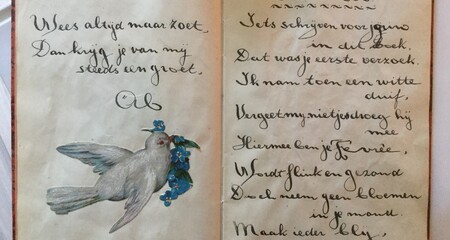 Wees altijd maar zoet,
Dan kryg je van my
steeds een groet,
Ab
Iets schrijven voor jouw
in dit boek.
Dat was je eerste verzoek.
Ik nam toen een witte
duif,
Vergeet my nietjes droeg hij
mee
Hiermee ben je
Wordt flink en gezond
Doch neem geen bloemen
in je mand.
Maak ieder bly,